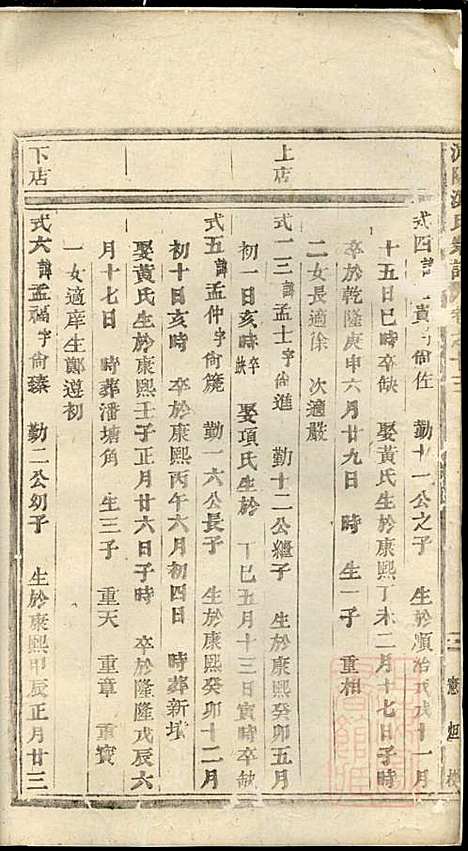 氏宗譜
三
式四諱孟 尙佐　勤十一公之子　生於順治戊戌十一月
十五日巳時卒缺　娶黃氏生於康熙丁未二月十七日子時
卒於乾隆庚申六月廿九日　時　生一子　重相
二女長適徐　次適嚴
上店
式一三諱孟士字尙進　勤十二公繼子　生於康熙癸卯五月
初一日亥時卒缺　娶項氏生於　丁巳五月十三日寅時卒缺
式五諱孟仲字尙篪　勤一六公長子　生於康熙癸卯十二月
初十日亥時　卒於康熙丙午六月初四日　時葬新墳
娶黃氏生於康熙壬子正月廿六日子時　卒於隆隆戊辰六
月十七日　時葬潘塘角　生三子　重天　重章　重寳
一女適庠生鄭遵初
下店
式六諱孟福字尙臻　勤二公幼子　生於康熙甲辰正月廿三